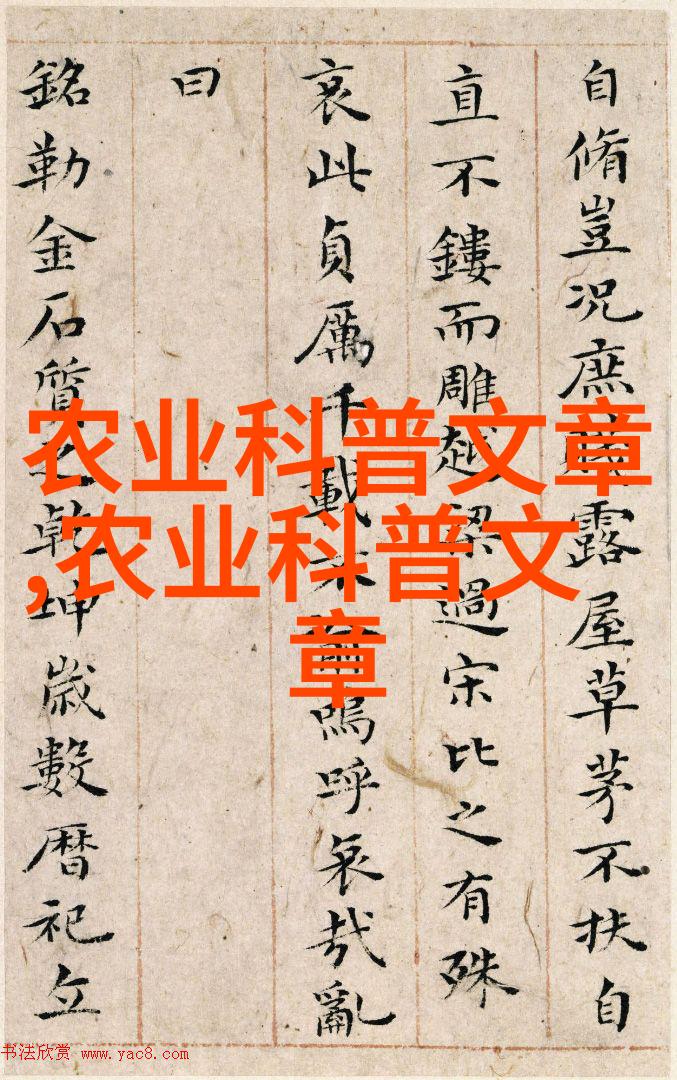 自脩豈况庶露屋草茅不扶自
直不鏤而雕越梁過宋比之有殊
哀此貞厲千載不嗚呼哀哉亂
曰
銘勒金石質之乾坤歲數曆祀立
农业科普文章
,农业科普文
章
书法欣赏 www.yac8.com